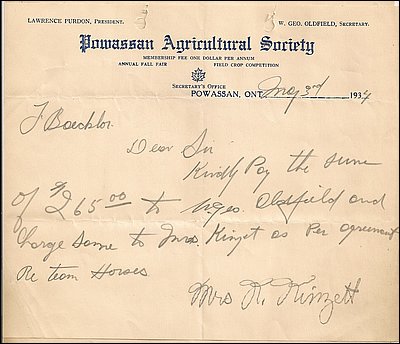 LAWRENCE PURDON, PRESIDENT. W. GEO. OLDFIELD, SECRETARY.
Powassan Agricultural Society
MEMBERSHIP FEE ONE DOLLAR PER ANNUM
ANNUAL FALL FAIR FIELD CROP COMPETITION
SECRETARY'S OFFICE
POWASSAN, ONT. May 3rd 1934
J Baechlor
Dear Sir
Kindly Pay the sum
of $265.00 to W. Geo. Oldfield and
Charge Same to Mrs. Kinzet as Per agreement
Re team Horses
Mrs R. Kinzett